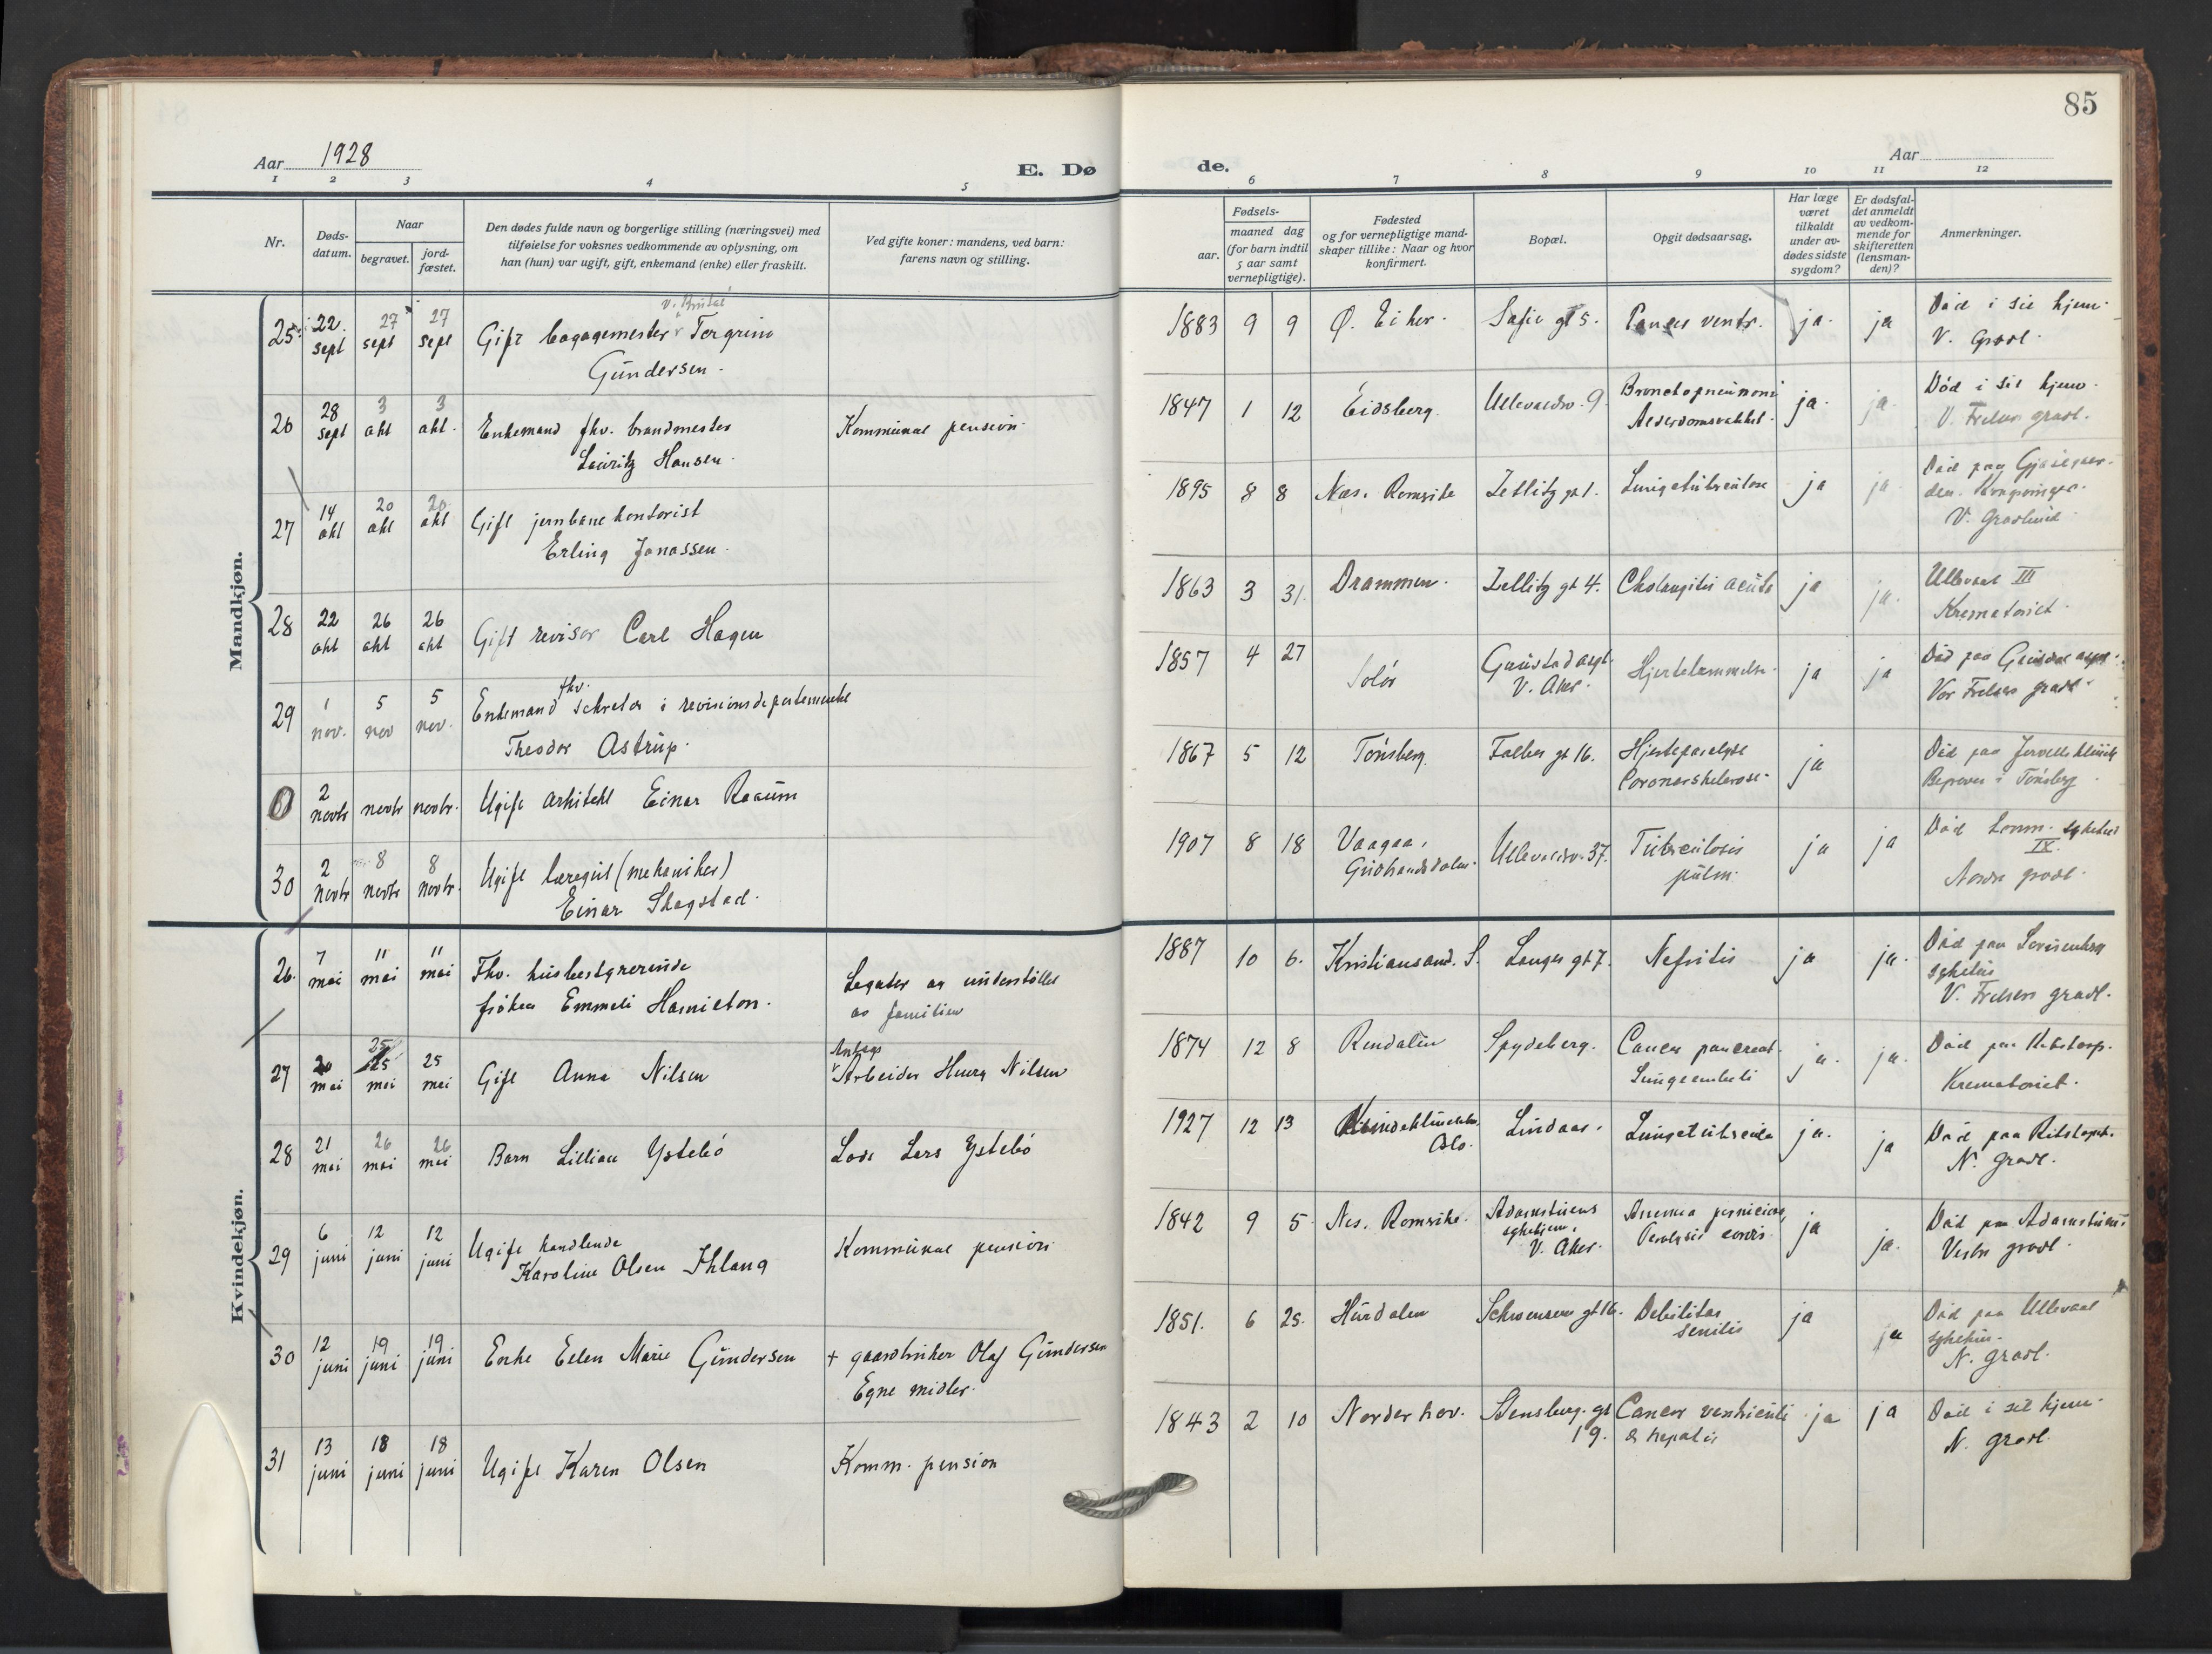 85
Aar 1928
E. Dø
de.
Aar
1 2 3 4 5
6 7 8 9 10 11 12
Nr.
Døds-
datum.
Naar
begravet.
jord-
fæstet.
Den dødes fulde navn og borgerlige stilling (næringsvei) med
tilføielse for voksnes vedkommende av oplysning, om
han (hun) var ugift, gift, enkemand (enke) eller fraskilt.
Ved gifte koner: mandens, ved barn:
farens navn og stilling.
Fødsels-
aar.
maaned dag
(for barn indtil
5 aar samt
vernepligtige).
Fødested
og for vernepligtige mand-
skaper tillike: Naar og hvor
konfirmert.
Bopæl.
Opgit dødsaarsag.
Har læge
været
tilkaldt
under av-
dødes sidste
sygdom?
Er dødsfal-
det anmeldt
av vedkom-
mende for
skifteretten
(lensman-
den)?
Anmerkninger.
Mandkjøn.
25 22 sept 27 sept 27 sept Gift bagagemester Torgrim
Gundersen.
1883 9 9 Ø. Eiker. Sofie gt 5. Cancer ventr. ja. ja Död i sit hjem.
V. Gravl.
26 28 sept 3 okt 3 okt. Enkemand fhv. brandmester
Lauritz Hansen.
Kommunal pension.
1847 1 12 Eidsberg. Ullevaalsv. 9. Bronchopneumoni
Alderdomsvakkel. ja. ja. Död i sit hjem.
V. Frelsers gravl.
27 14 okt 20 okt 20 okt Gift jernbanekontorist
Erling Jonassen.
1895 8 8 Nes. Romerike Zetlitz gt 1. Lungetuberkulose ja ja
V. Gravlund
28 22 okt 26 okt 26 okt Gift revisor Carl Hagen
1863 3 31. Drammen. Zetlitz gt 4. Cholangitis acuta ja ja. Ullevaal III
Krematoriet.
29 1 nov. 5 nov 5 nov. Enkemand fhv. sekretær i revisionsdepartementet
Theodor Astrup.
1857 4 27 Solör Gaustad asyl.
V. Aker. Hjertelammelse. ja ja Död paa Gaustad asyl.
Vor Frelsers gravl.
0 2 novbr novbr novbr. Ugift arkitekt Einar Raaum
1867 5 12 Tönsberg. Falbes gt 16. Hjerteparalyse
Coronarsklerose. ja
Begraves i Tönsberg
30 2 novbr 8 novbr 8 novbr. Ugift læregut (mekaniker)
Einar Skogstad.
1907 8 18 Vaagaa,
Gudbrandsdalen. Ullevaalsv. 37. Tuberculosis
pulm. ja ja Död Komm. sykehus
IX.
Nordre gravl.
Kvindekjøn.
26. 7 mai 11 mai 11 mai Fhv. husbestyrerinde
fröken Emmeli Hamilton.
Legater og understöttet
av familien
1887 10 6. Kristiansand. S. Langes gt 7. Nefritis ja ja. Död paa Lovisenberg
sykehus
V. Frelsers gravl.
27 20 mai 25 mai 25 mai Gift Anna Nilsen
Arbeider Henry Nilsen
1874 12 8 Rendalen Spydeberg. Cancer pancreat.
Lungeemboli ja. ja. Död paa Rikshosp.
Krematoriet.
28 21 mai 26 mai 26 mai Barn Lillian Ystebö
Lods Lars Ystebö
1927 12 13 Kvindeklinikken,
Oslo. Lindaas. Lungetuberkulo ja. ja Död paa Rikshospt.
N. Gravl.
29 6 juni 12 juni 12 juni Ugift handlende
Karoline Olsen Ihlang
Kommunal pension
1842 9 5. Nes. Romerike. Adamstuens
sykehjem.
V. Aker. Anemia perniciosa,
Paralysis cordis. ja ja. Död paa Adamstuen.
Vestre gravl.
30 12 juni 19 juni 19 juni Enke Ellen Marie Gundersen
+ gaardbruker Olaf Gundersen
Egne midler.
1851. 6 25. Hurdalen Schwensens gt 16. Debilitas
senilis ja ja Död paa Ullevaal
sykehus.
N. gravl.
31 13 juni 18 juni 18 juni Ugift Karen Olsen
Komm. pension
1843 2 10 Norderhov. Stensberg. gt
19. Cancer ventriculi
& hepatis ja ja Död i sit hjem.
N. gravl.